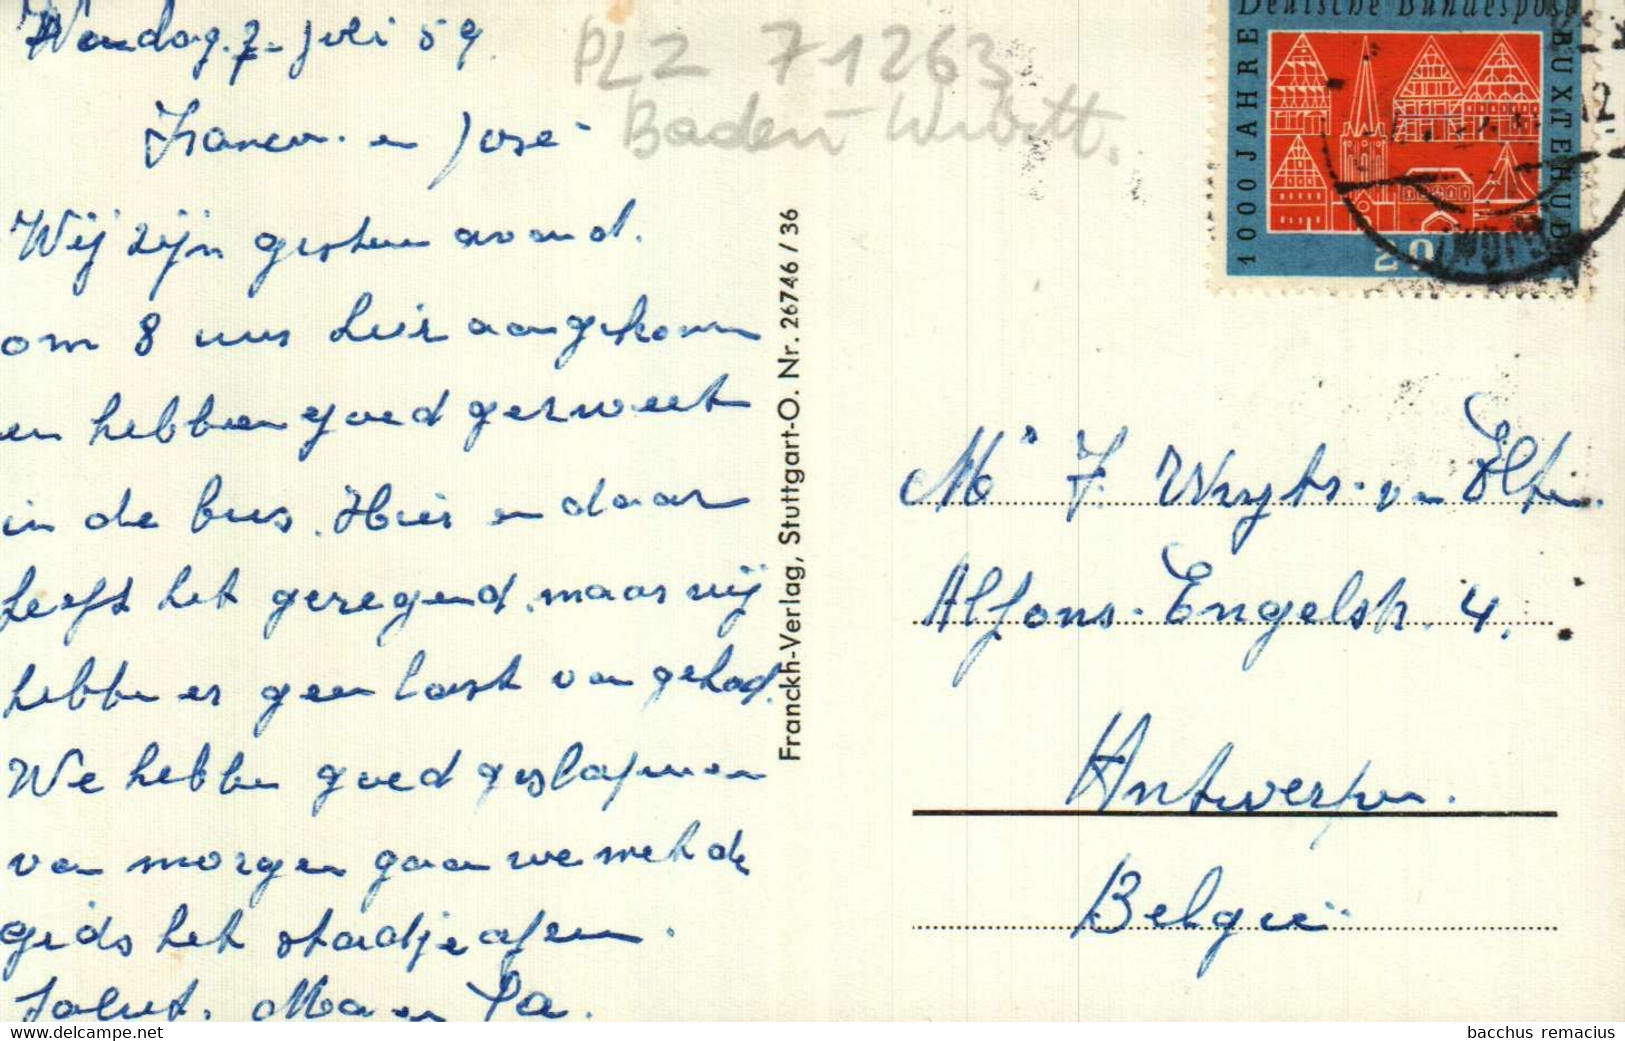 7 Juli 59.
en José
Wij zijn gisteren avond.
om 8 uur hier aangekomen
en hebben goed gerweet
in de bus. Hier en daar
heeft het geregend, maar wij
hebben er geen last van gehad.
We hebben goed geslapen en
van morgen gaan we met de
gids het stadje afzien.
Salut. Ma en Pa.
PLZ 71263
Baden-Württ.
Franckh-Verlag, Stuttgart-O. Nr. 26746 / 36
Deutsche Bundespost
1000 JAHRE
BUXTEHUDE
20
Mr F. Wuyts-van
Alfons-Engelstr. 4.
Antwerpen.
België
bacchus remacius
www.delcampe.net